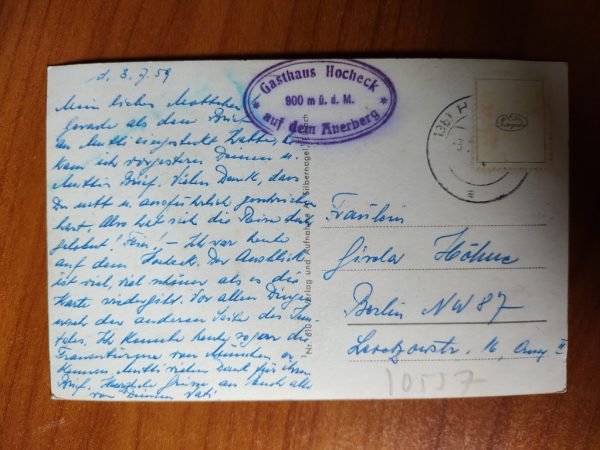 d. 3. 7. 59
Mein liebes
Gerade als dein Brief
an Mutti eingesteckt hatte,
kam ich vorgestern Deinen u.
Muttis Brief. Vielen Dank, dass
Du nett u. ausführlich geschrieben
hast. Also hat sich die Reise doch
gelohnt! Fein! — Ich war heute
auf dem Hocheck. Der Ausblick
ist viel, viel schöner als es die
Karte wiedergibt. Vor allen Dingen
nach der anderen Seite des
Ich konnte heute sogar die
Frauentürme von München er-
kennen. Mutti vielen Dank für ihren
Brief. Herzliche Grüsse an Euch alle
von Deinem Vati
Gasthaus Hocheck
900 m ü. d. M.
auf dem Auerberg
Verlag und Aufnahme Silbernagel
Fräulein
Gisela Höhne
Berlin NW 87
10557